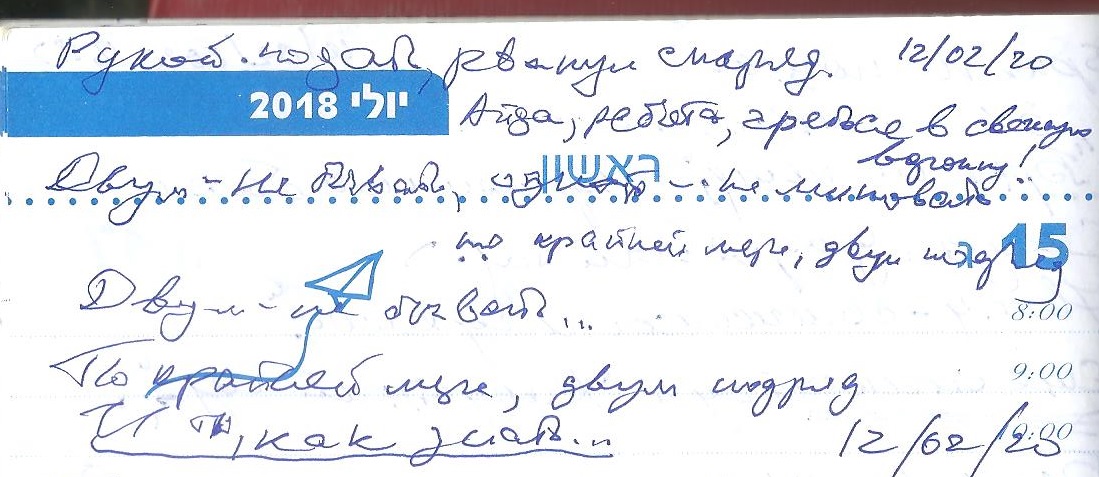 Рукой подать, рванул снаряд. 12/02/20
יולי 2018
Айда, ребята, греться в свежую
воронку!
ראשון
Двум - не бывать, одной - не миновать
по крайней мере, двум подряд
15
Двум - не бывать...
8:00
По крайней мере, двум подряд
9:00
И то, как знать...
12/02/20